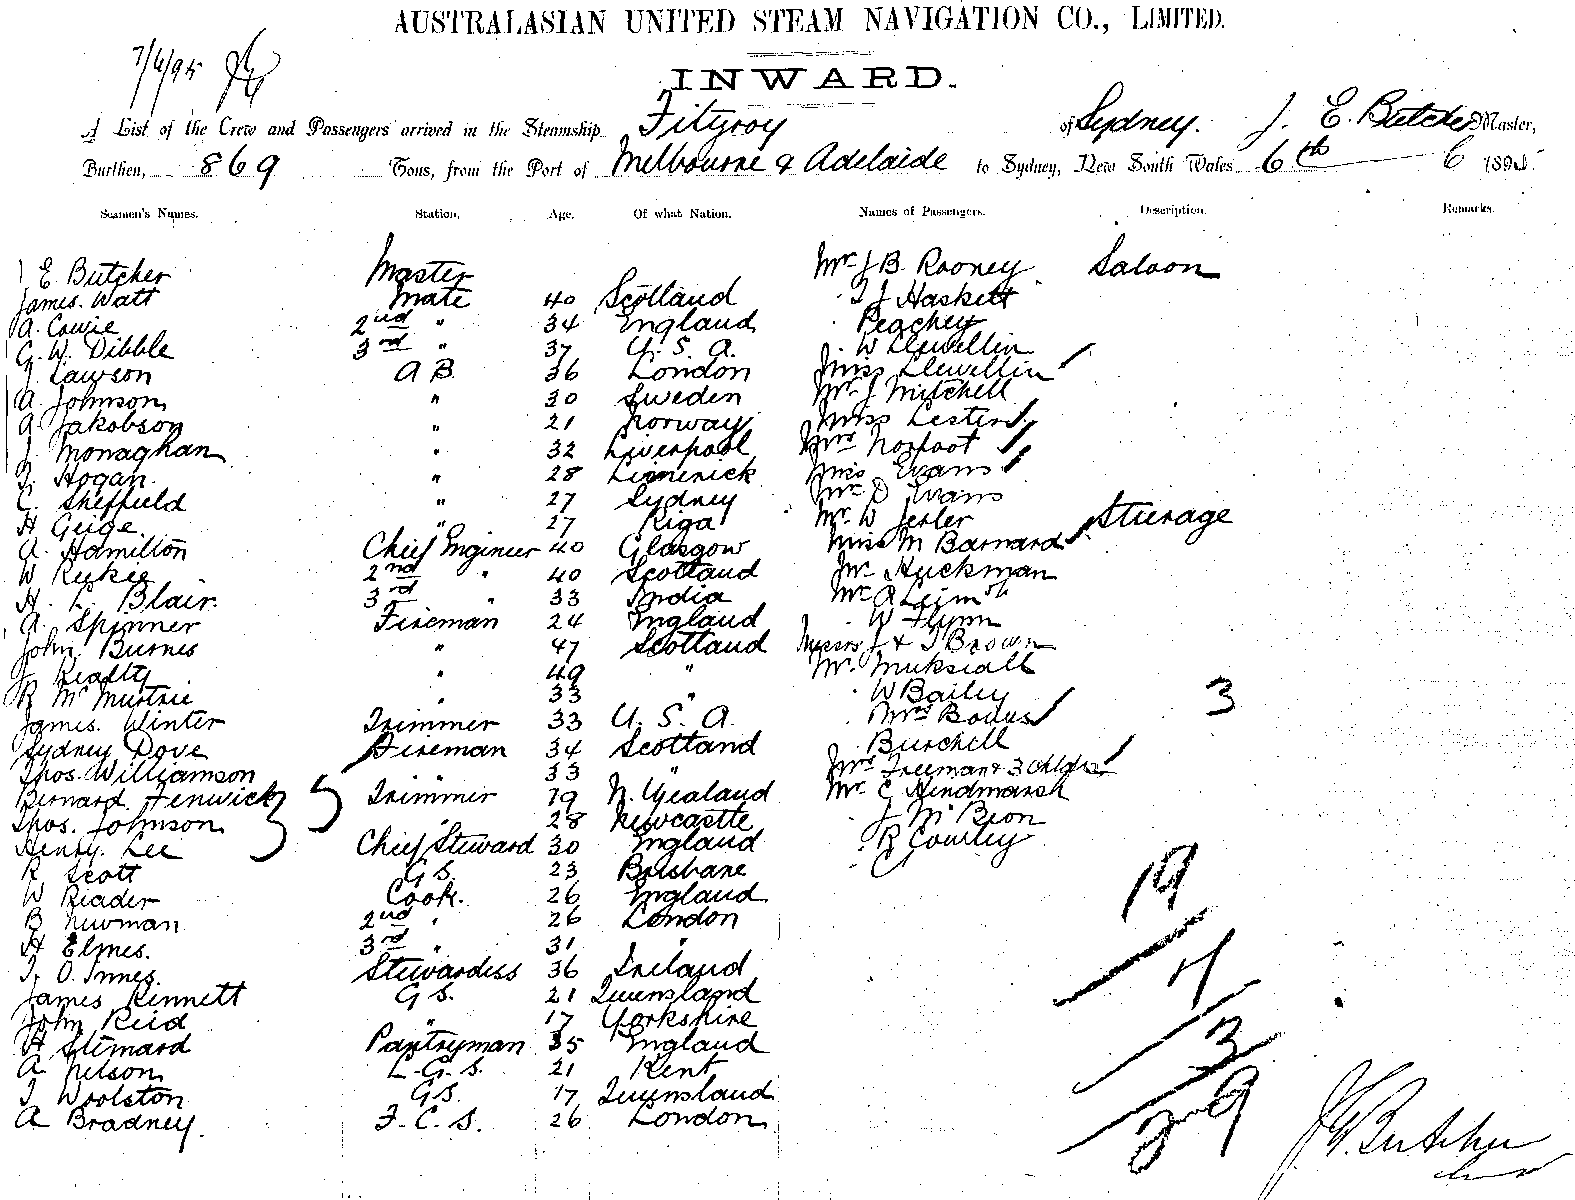 AUSTRALASIAN UNITED STEAM NAVIGATION CO., LIMITED.
7/6/95
INWARD.
A List of the Crew and Passengers arrived in the Steamship Fitzroy of Sydney. J. E. Butcher Master,
Burthen, 869 Tons, from the Port of Melbourne & Adelaide to Sydney, New South Wales 6th 6 1895
Seamen's Names. Station. Age. Of what Nation. Names of Passengers. Description. Remarks.
J E. Butcher Master Mr J B. Rooney Saloon
James. Watt Mate 40 Scotland " T J Haskett
A. Cowie 2nd " 34 England Peachey
G. W. Dibble 3rd " 37 U. S. A. " W Llewellin
J. Lawson A B. 36 London Miss Llewellin
A. Johnson " 30 Sweden Mr J Mitchell
A. Jakobson " 21 Norway Miss Lester
J. Monaghan " 32 Liverpool Mrs Norfoot
T. Hogan " 28 Limerick Miss Evans
C. Sheffield " 27 Sydney Mr D Evans
H Geige " 27 Riga Mr W
A. Hamilton Chief Engineer 40 Glasgow Miss M Barnard Steerage
W 2nd " 40 Scotland Mr Huckman
H. L. Blair 3rd " 33 India Mr A
A. Spinner Fireman 24 England W Flynn
John Burnes " 47 Scotland Messrs J & T Brown
J. Realty " 49 " Mr.
R Mc Murtrie " 33 " " W Bailey
James. Winter Trimmer 33 U. S. A. " Mrs 3
Sydney Dove Fireman 34 Scotland Burchell
Thos. Williamson " 33 " Mrs Freeman & 3 Chldn
Bernard Fenwick 5 Trimmer 19 N. Zealand Mr C Hindmarsh
Thos. Johnson " 28 Newcastle " J
Henry. Lee Chief Steward 30 England " R Courley
R Scott G S. 23 Brisbane
W Reader Cook. 26 England
B Newman 2nd " 26 London
H Elmes. 3rd " 31 "
T. O. Innes. Stewardess 36 Ireland
James Rennett G S. 21 Queensland
John Reid " 17 Yorkshire
H Pantryman 35 England
A Nelson L. G. S. 21 Kent
T Woolston G S. 17 Queensland
A Bradney. F. C. S. 26 London
19
7
3
29
J. E. Butcher